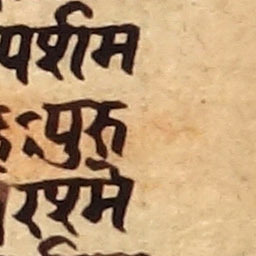 पर्शम
पुरु
रश्मे